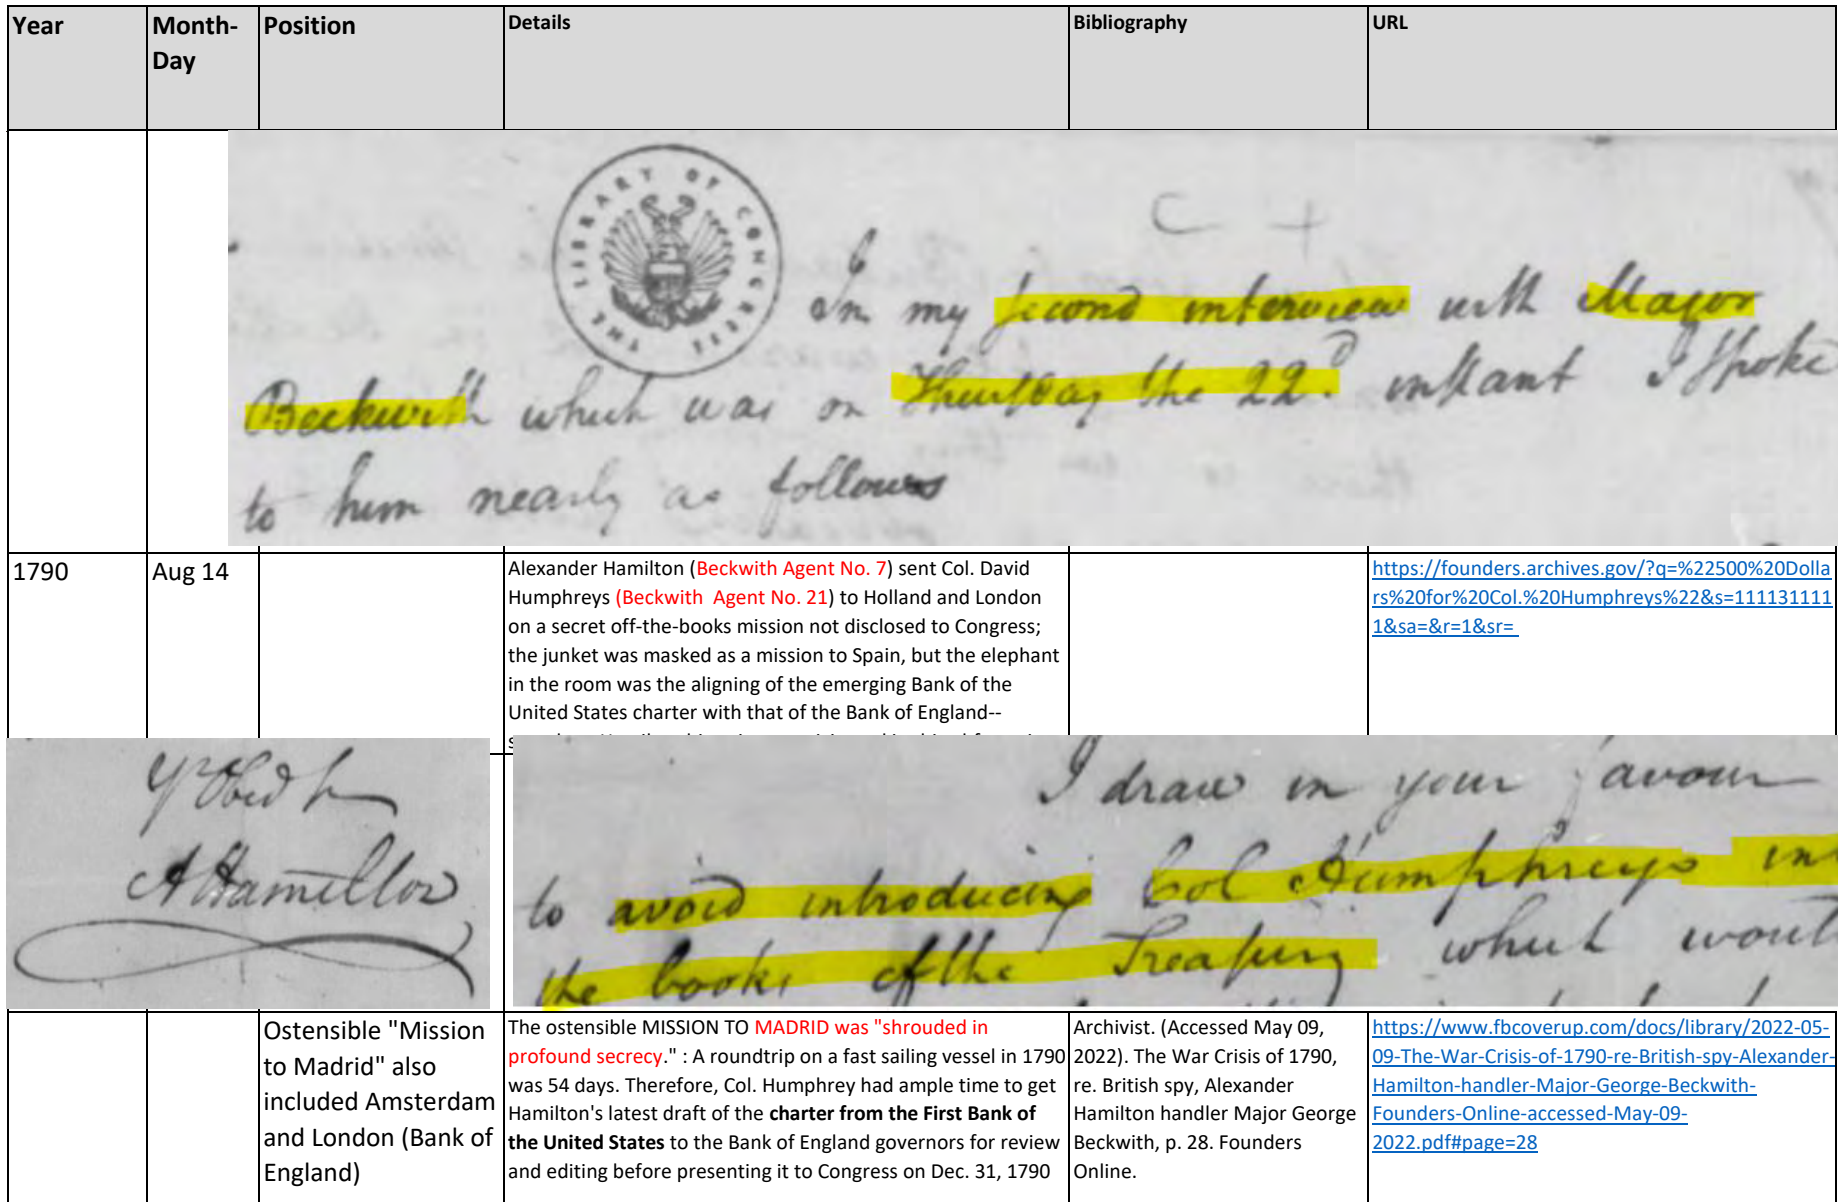 Year
Month-
Day
Position
Details
Bibliography
URL
THE LIBRARY OF CONGRESS
C +
In my second interview with Major
Beckwith which was on Thursday the 22d. instant I spoke
to him nearly as follows
1790
Aug 14
Alexander Hamilton (Beckwith Agent No. 7) sent Col. David
Humphreys (Beckwith  Agent No. 21) to Holland and London
on a secret off-the-books mission not disclosed to Congress;
the junket was masked as a mission to Spain, but the elephant
in the room was the aligning of the emerging Bank of the
United States charter with that of the Bank of England--
https://founders.archives.gov/?q=%22500%20Dolla
rs%20for%20Col.%20Humphreys%22&s=111131111
1&sa=&r=1&sr=
Yr Obed
A Hamilton
I draw in your favour
to avoid introducing Col Humphreys in
the books of the Treasury which woul
Ostensible "Mission
to Madrid" also
included Amsterdam
and London (Bank of
England)
The ostensible MISSION TO MADRID was "shrouded in
profound secrecy." : A roundtrip on a fast sailing vessel in 1790
was 54 days. Therefore, Col. Humphrey had ample time to get
Hamilton's latest draft of the charter from the First Bank of
the United States to the Bank of England governors for review
and editing before presenting it to Congress on Dec. 31, 1790
Archivist. (Accessed May 09,
2022). The War Crisis of 1790,
re. British spy, Alexander
Hamilton handler Major George
Beckwith, p. 28. Founders
Online.
https://www.fbcoverup.com/docs/library/2022-05-
09-The-War-Crisis-of-1790-re-British-spy-Alexander-
Hamilton-handler-Major-George-Beckwith-
Founders-Online-accessed-May-09-
2022.pdf#page=28